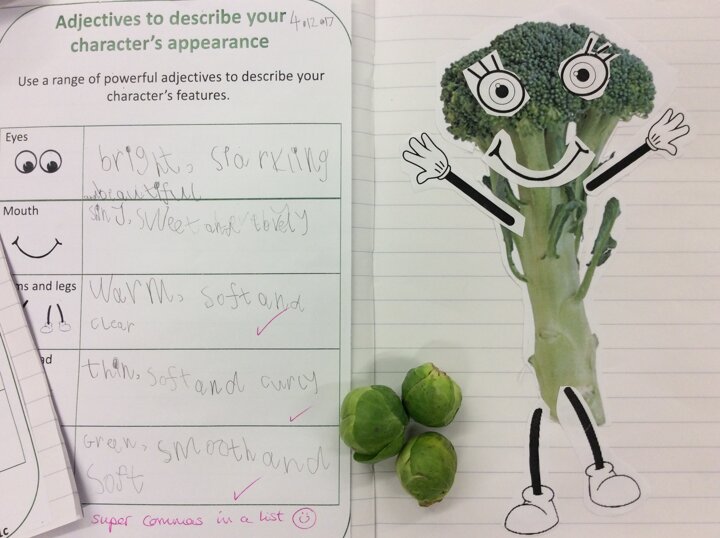 Adjectives to describe your
4.12.17
character's appearance
Use a range of powerful adjectives to describe your
character's features.
Eyes
bright, starkling
and beautiful
Mouth
shiny, sweet and lovely
ms and legs
Warm, soft and
clear
ad
thin, soft and curly
Green, smooth and
soft
super commas in a list